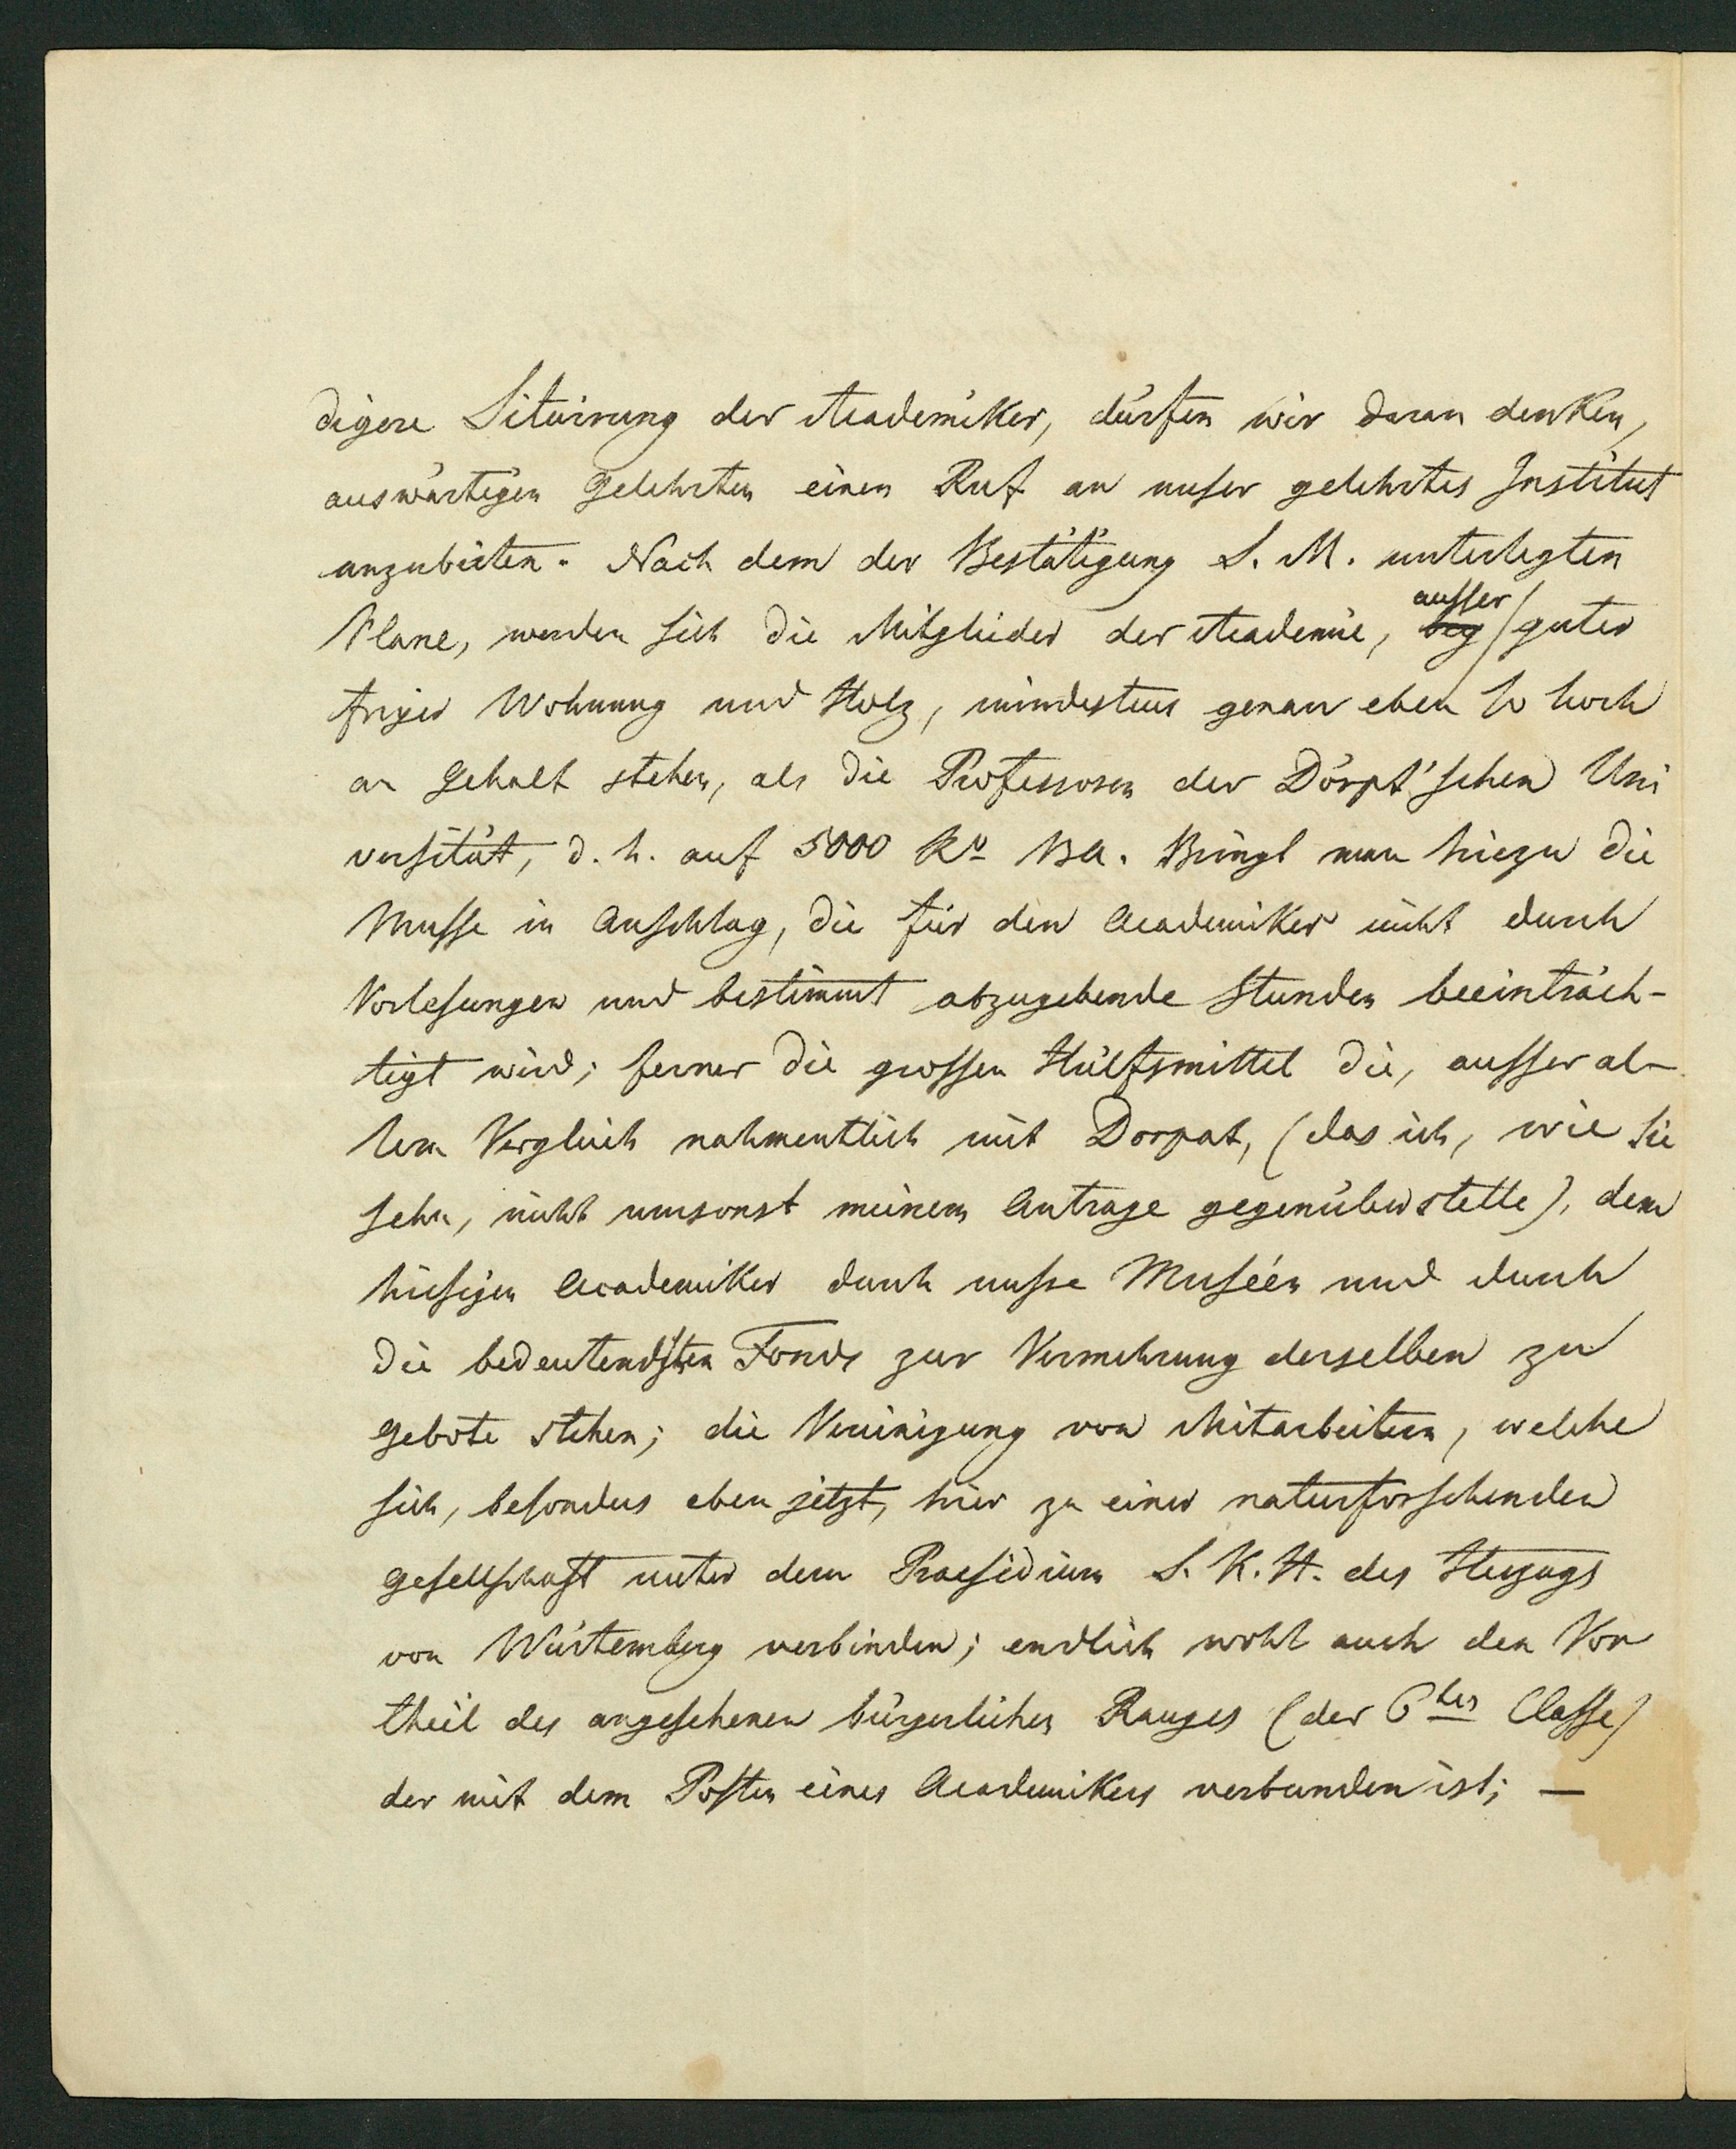 digere Situirung der Academiker, dürfen wir daran denken,
auswärtigen Gelehrten einen Ruf an unser gelehrtes Institut
anzubieten. Nach dem der Bestätigung S. M. unterlegten
Plane, werden sich die Mitglieder der Academie, bey ausser guter
freyer Wohnung und Holz, mindestens genau eben so hoch
an Gehalt stehen, als die Professoren der Dörpt'schen Uni
versität, d. h. auf 5000 Rº BA. Bringt man hiezu die
Musse in Anschlag, die für den Academiker nicht durch
Vorlesungen und bestimmt abzugebende Stunden beeinträch-
tigt wird; ferner die grossen Hülfsmittel die, ausser al-
lem Vergleich nahmentlich mit Dorpat, (das ich, wie Sie
sehn, nicht umsonst meinem Antrage gegenüberstelle), dem
hiesigen Academiker durch unsre Museén und durch
die bedeutendsten Fonds zur Vermehrung derselben zu
Gebote stehen; die Vereinigung von Mitarbeitern, welche
sich, besonders eben jetzt, hier zu einer naturforschenden
Gesellschaft unter dem Praesidium S. K. H. des Herzogs
von Würtemberg verbinden; endlich wohl auch den Vor
theil des angesehenen bürgerlichen Ranges (der 6ter Classe)
der mit dem Posten eines Academikers verbunden ist; —